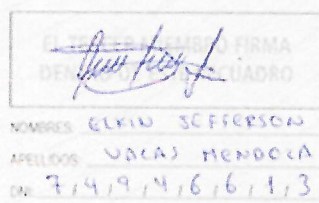 EL TERCER MIEMBRO FIRMA
DENTRO DE ESTE RECUADRO
NOMBRES: ELKIN JEFFERSON
APELLIDOS: VACAS MENDOZA
DNI: 7,4,9,4,6,6,1,3